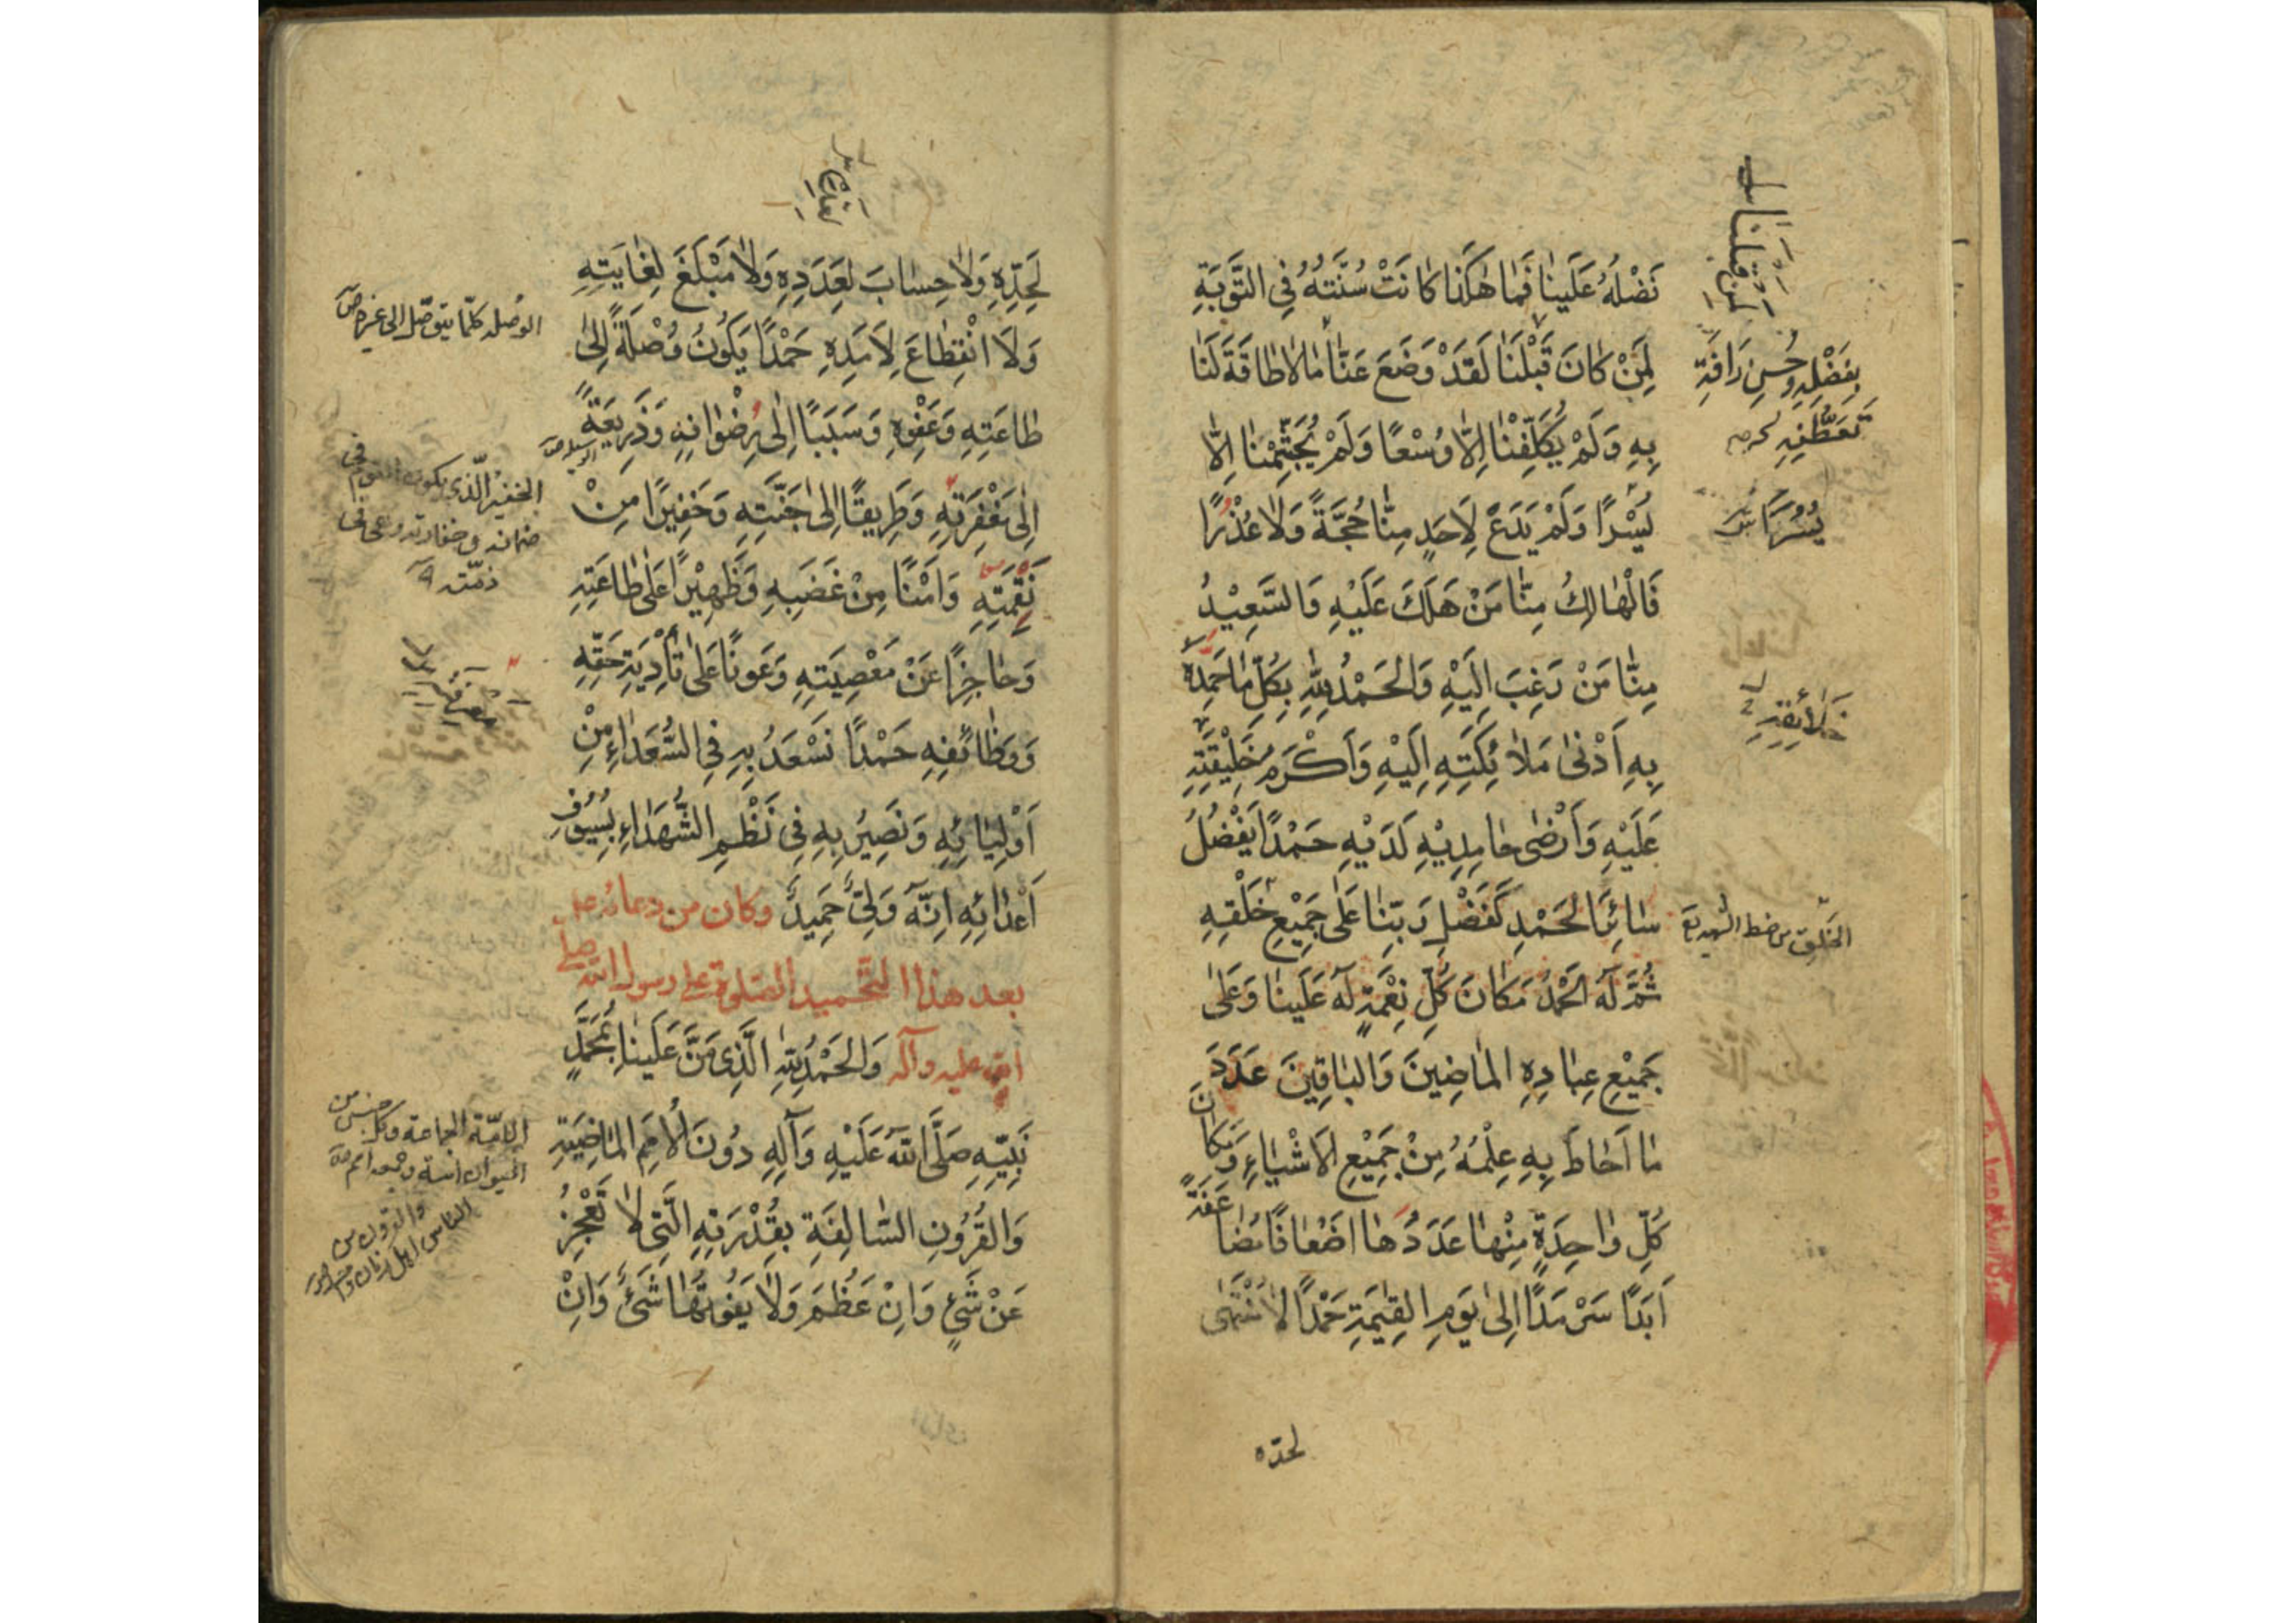 فَضْلُهُ عَلَيْنٰا فَمٰا هٰكَذٰا كٰانَتْ سُنَّتُهُ فِي التَّوْبَةِ
لِمَنْ كٰانَ قَبْلَنٰا لَقَدْ وَضَعَ عَنّٰا مٰا لاٰ طٰاقَةَ لَنٰا
بِهِ وَلَمْ يُكَلِّفْنٰا اِلاّٰ وُسْعًا وَلَمْ يُجَشِّمْنٰا اِلاّٰ
يُسْرًا وَلَمْ يَدَعْ لِاَحَدٍ مِنّٰا حُجَّةً وَلاٰ عُذْرًا
فَالْهٰالِكُ مِنّٰا مَنْ هَلَكَ عَلَيْهِ وَالسَّعِيْدُ
مِنّٰا مَنْ رَغِبَ اِلَيْهِ وَالْحَمْدُ لِلّٰهِ بِكُلِّ مٰا حَمِدَهُ
بِهِ اَدْنٰى مَلاٰئِكَتِهِ اِلَيْهِ وَاَكْرَمُ خَلِيْقَتِهِ
عَلَيْهِ وَاَرْضٰى حٰامِدِيْهِ لَدَيْهِ حَمْدًا يَفْضُلُ
سٰائِرَ الْحَمْدِ كَفَضْلِ رَبِّنٰا عَلٰى جَمِيْعِ خَلْقِهِ
ثُمَّ لَهُ الْحَمْدُ مَكٰانَ كُلِّ نِعْمَةٍ لَهُ عَلَيْنٰا وَعَلٰى
جَمِيْعِ عِبٰادِهِ الْمٰاضِينَ وَالْبٰاقِينَ عَدَدَ
مٰا اَحٰاطَ بِهِ عِلْمُهُ مِنْ جَمِيْعِ الْاَشْيٰاءِ وَمَكٰانَ
كُلِّ وٰاحِدَةٍ مِنْهٰا عَدَدُهٰا اَضْعٰافًا مُضٰاعَفَةً
اَبَدًا سَرْمَدًا اِلٰى يَوْمِ الْقِيٰمَةِ حَمْدًا لاٰ مُنْتَهٰى
لحدّه
لِمَنْ قَبْلَنٰا
بِفَضْلِهِ وَحُسْنِ رَأفَتِهِ
تَعَطُّفِهِ
يُسُرًا س
خَلاٰئِقِهِ
لِحَدِّهِ وَلاٰ حِسٰابَ لِعَدَدِهِ وَلاٰ مَبْلَغَ لِغٰايَتِهِ
وَلاَ انْقِطٰاعَ لِاَمَدِهِ حَمْدًا يَكُونُ وُصْلَةً اِلٰى
طٰاعَتِهِ وَعَفْوِهِ وَسَبَبًا اِلٰى رِضْوٰانِهِ وَذَرِيعَةً
اِلٰى مَغْفِرَتِهِ وَطَرِيقًا اِلٰى جَنَّتِهِ وَخَفِيرًا مِنْ
نَقِمَتِهِ وَاَمْنًا مِنْ غَضَبِهِ وَظَهِيْرًا عَلٰى طٰاعَتِهِ
وَحٰاجِزًا عَنْ مَعْصِيَتِهِ وَعَوْنًا عَلٰى تَأْدِيَةِ حَقِّهِ
وَوَظٰائِفِهِ حَمْدًا نَسْعَدُ بِهِ فِي السُّعَدٰاءِ مِنْ
اَوْلِيٰائِهِ وَنَصِيْرُ بِهِ فِي نَظْمِ الشُّهَدٰاءِ بِسُيُوفِ
اَعْدٰائِهِ اِنَّهُ وَلِيٌّ حَمِيدٌ وكان من دعائه على
بعد هذا التحميد الصلوة على رسول الله صلى
الله عليه وآله وَالْحَمْدُ لِلّٰهِ الَّذِي مَنَّ عَلَيْنٰا بِمُحَمَّدٍ
نَبِيِّهِ صَلَّى اللّٰهُ عَلَيْهِ وَآلِهِ دُونَ الْاُمَمِ الْمٰاضِيَةِ
وَالْقُرُونِ السّٰالِفَةِ بِقُدْرَتِهِ الَّتِي لاٰ تَعْجِزُ
عَنْ شَيْءٍ وَاِنْ عَظُمَ وَلاٰ يَفُوتُهٰا شَيْءٌ وَاِنْ
الوصله كلّما يتوصّل الى غيره ص
الخفير الّذي يكون القوم في
ضمانه وخفارته وعى في
ذمّته
الامّة الجماعة وكل جنس من
الحيوان امة وجمعه امم ص
والقرون من
الناس اهل زمان واحد